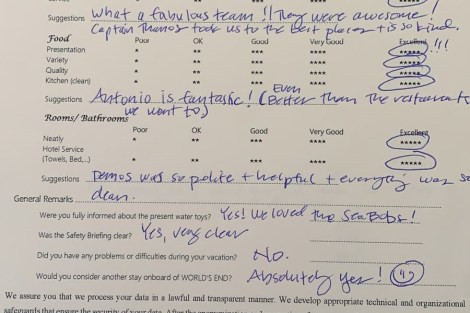 Suggestions What a fabulous team!! They were awesome!
Captain Thanos took us to the best places + is so kind.
Food Poor OK Good Very Good Excellent
Presentation * ** *** **** ***** !!!
Variety * ** *** **** *****
Quality * ** *** **** *****
Kitchen (clean) * ** *** **** *****
Suggestions Antonio is fantastic! (Even Better than the restaurants
we went to)
Rooms/ Bathrooms
Poor OK Good Very Good Excellent
Neatly * ** *** **** *****
Hotel Service
(Towels, Bed,..) * ** *** **** *****
Suggestions Demos was so polite + helpful + everything was so
clean.
General Remarks
Were you fully informed about the present water toys? Yes! We loved the SeaBobs!
Was the Safety Briefing clear? Yes, very clear
Did you have any problems or difficulties during your vacation? No.
Would you consider another stay onboard of WORLD'S END? Absolutely yes!
We assure you that we process your data in a lawful and transparent manner. We develop appropriate technical and organizational
safeguards that ensure the security of your data.